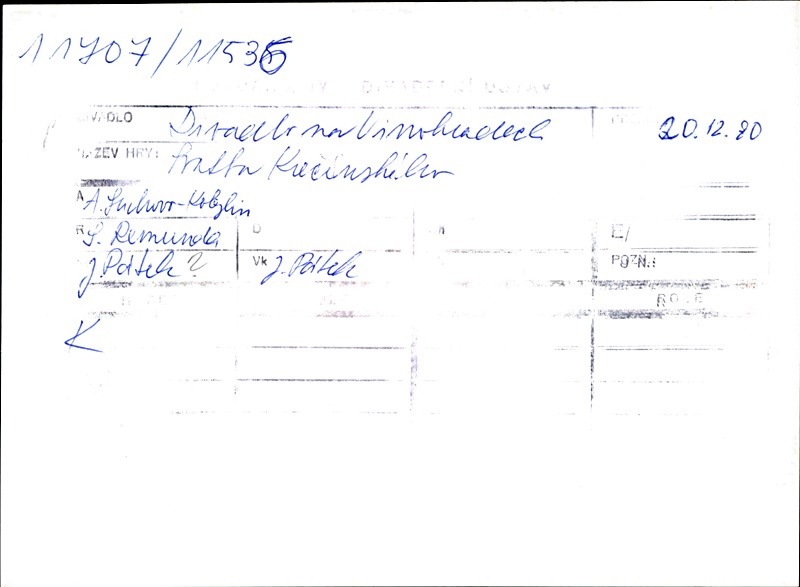 11707/11535
DIVADELNÍ ÚSTAV
DIVADLO Divadlo na Vinohradech 20.12.90
NÁZEV HRY: Svatba Krečinského
A A. Suchovo-Kobylin
R S. Remunda D E/
J. Pátek ? Vk J. Pátek POZN.:
ROLE
K